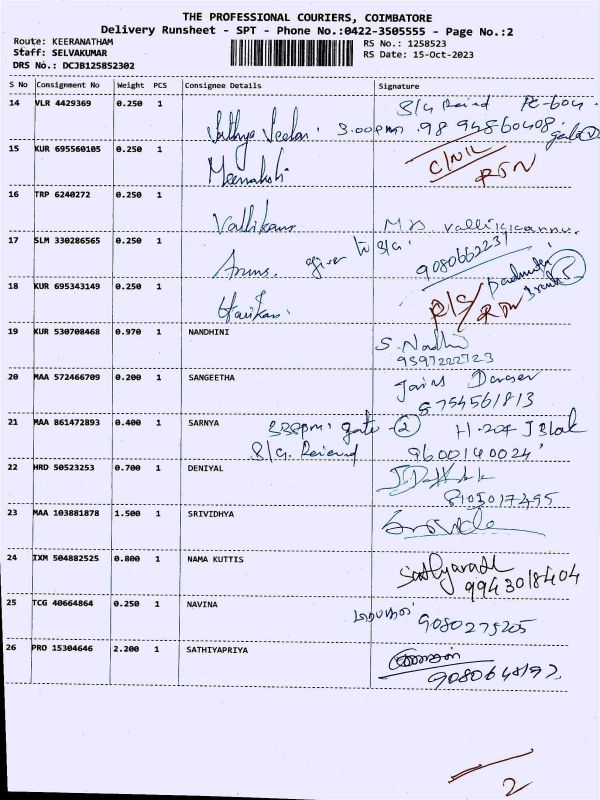 THE PROFESSIONAL COURIERS, COIMBATORE
Delivery Runsheet - SPT - Phone No.:0422-3505555 - Page No.:2
Route: KEERANATHAM
RS No.: 1258523
Staff: SELVAKUMAR
RS Date: 15-Oct-2023
DRS No.: DCJB125852302
S No Consignment No Weight PCS Consignee Details Signature
14 VLR 4429369 0.250 1
3.00pm
15 KUR 695560105 0.250 1 Meenakshi
RTN
16 TRP 6240272 0.250 1
17 SLM 330286565 0.250 1 Arun
9080662231
18 KUR 695343149 0.250 1
RTN
19 KUR 530708468 0.970 1 NANDHINI
9597222723
20 MAA 572466709 0.200 1 SANGEETHA
8754561813
21 MAA 861472893 0.400 1 SARNYA 3.38pm gate - 2 H-204 J Block
9600140024
22 HRD 50523253 0.700 1 DENIYAL
8105017495
23 MAA 103881878 1.500 1 SRIVIDHYA
24 IXM 504882525 0.800 1 NAMA KUTTIS
9943018404
25 TCG 40664864 0.250 1 NAVINA
9080275205
26 PRO 15304646 2.200 1 SATHIYAPRIYA
2